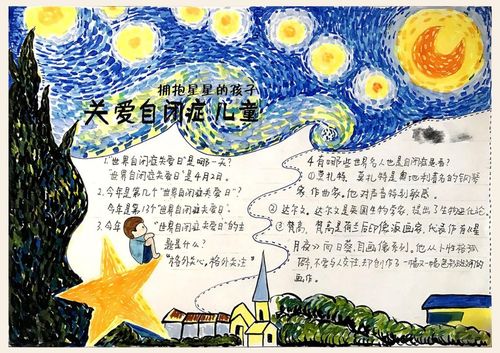 拥抱星星的孩子
关爱自闭症儿童
1."世界自闭症关爱日"是哪一天?
"世界自闭症关爱日"是4月2日。
2.今年是第几个"世界自闭症关爱日"?
今年是第13个"世界自闭症关爱日"。
3.今年"世界自闭症关爱日"的主
题是什么?
"格外关心,格外关注"
4.有哪些世界名人也是自闭症患者?
①莫扎特,莫扎特是奥地利著名的钢琴
家作曲家。他对声音特别敏感。
②达尔文,达尔文是英国生物学家,提出了生物进化论
③梵高,梵高是荷兰后印象派画家,代表作有《星
月夜》向日葵、自画像系列。他从小性格孤
僻,不爱与人交往,却创作了一幅又一幅色彩斑斓的
画作。